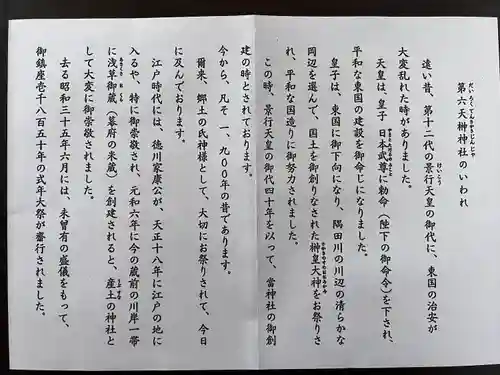 第六天榊神社のいわれ
遠い昔、第十二代の景行天皇の御代に、東国の治安が
大変乱れた時がありました。
天皇は、皇子日本武尊に勅命（陛下の御命令）を下され、
平和な東国の建設を御命じになりました。
皇子は、東国に御下向になり、隅田川の川辺の清らかな
岡辺を選んで、国土を御創りなされた榊皇大神をお祭りさ
れ、平和な国造りに御努力されました。
この時、景行天皇の御代四十年を以って、當神社の御創
建の時とされております。
今から、凡そ一、九００年の昔であります。
爾来、郷土の氏神様として、大切にお祭りされて、今日
に及んでおります。
江戸時代には、徳川家康公が、天正十八年に江戸の地に
入るや、特に御崇敬され、元和六年に今の蔵前の川岸一帯
に浅草御蔵（幕府の米蔵）を創建されると、産土の神社と
して大変に御崇敬されました。
去る昭和三十五年六月には、未曾有の盛儀をもって、
御鎮座壱千八百五十年の式年大祭が齋行されました。